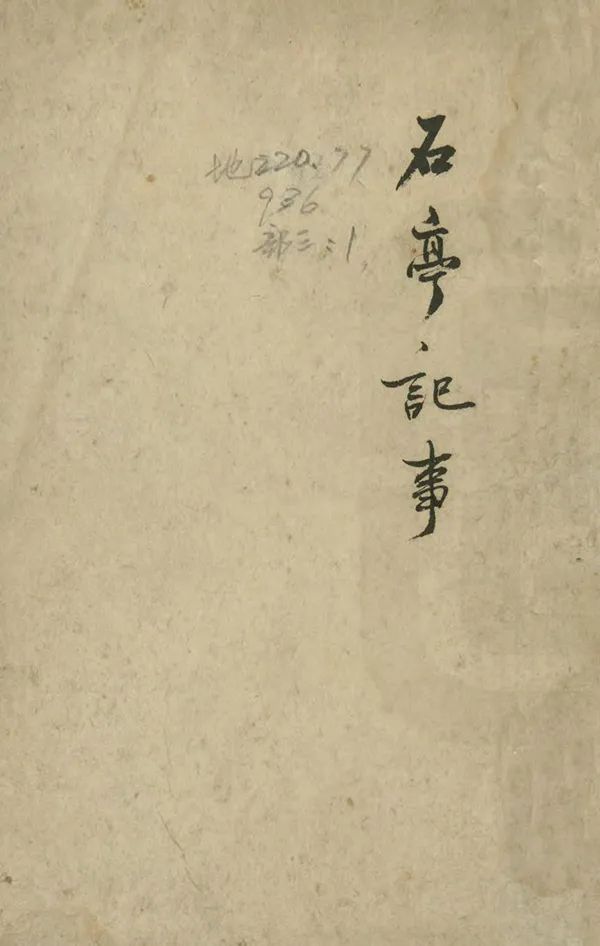 石亭記事
地220.77
936
部三:1